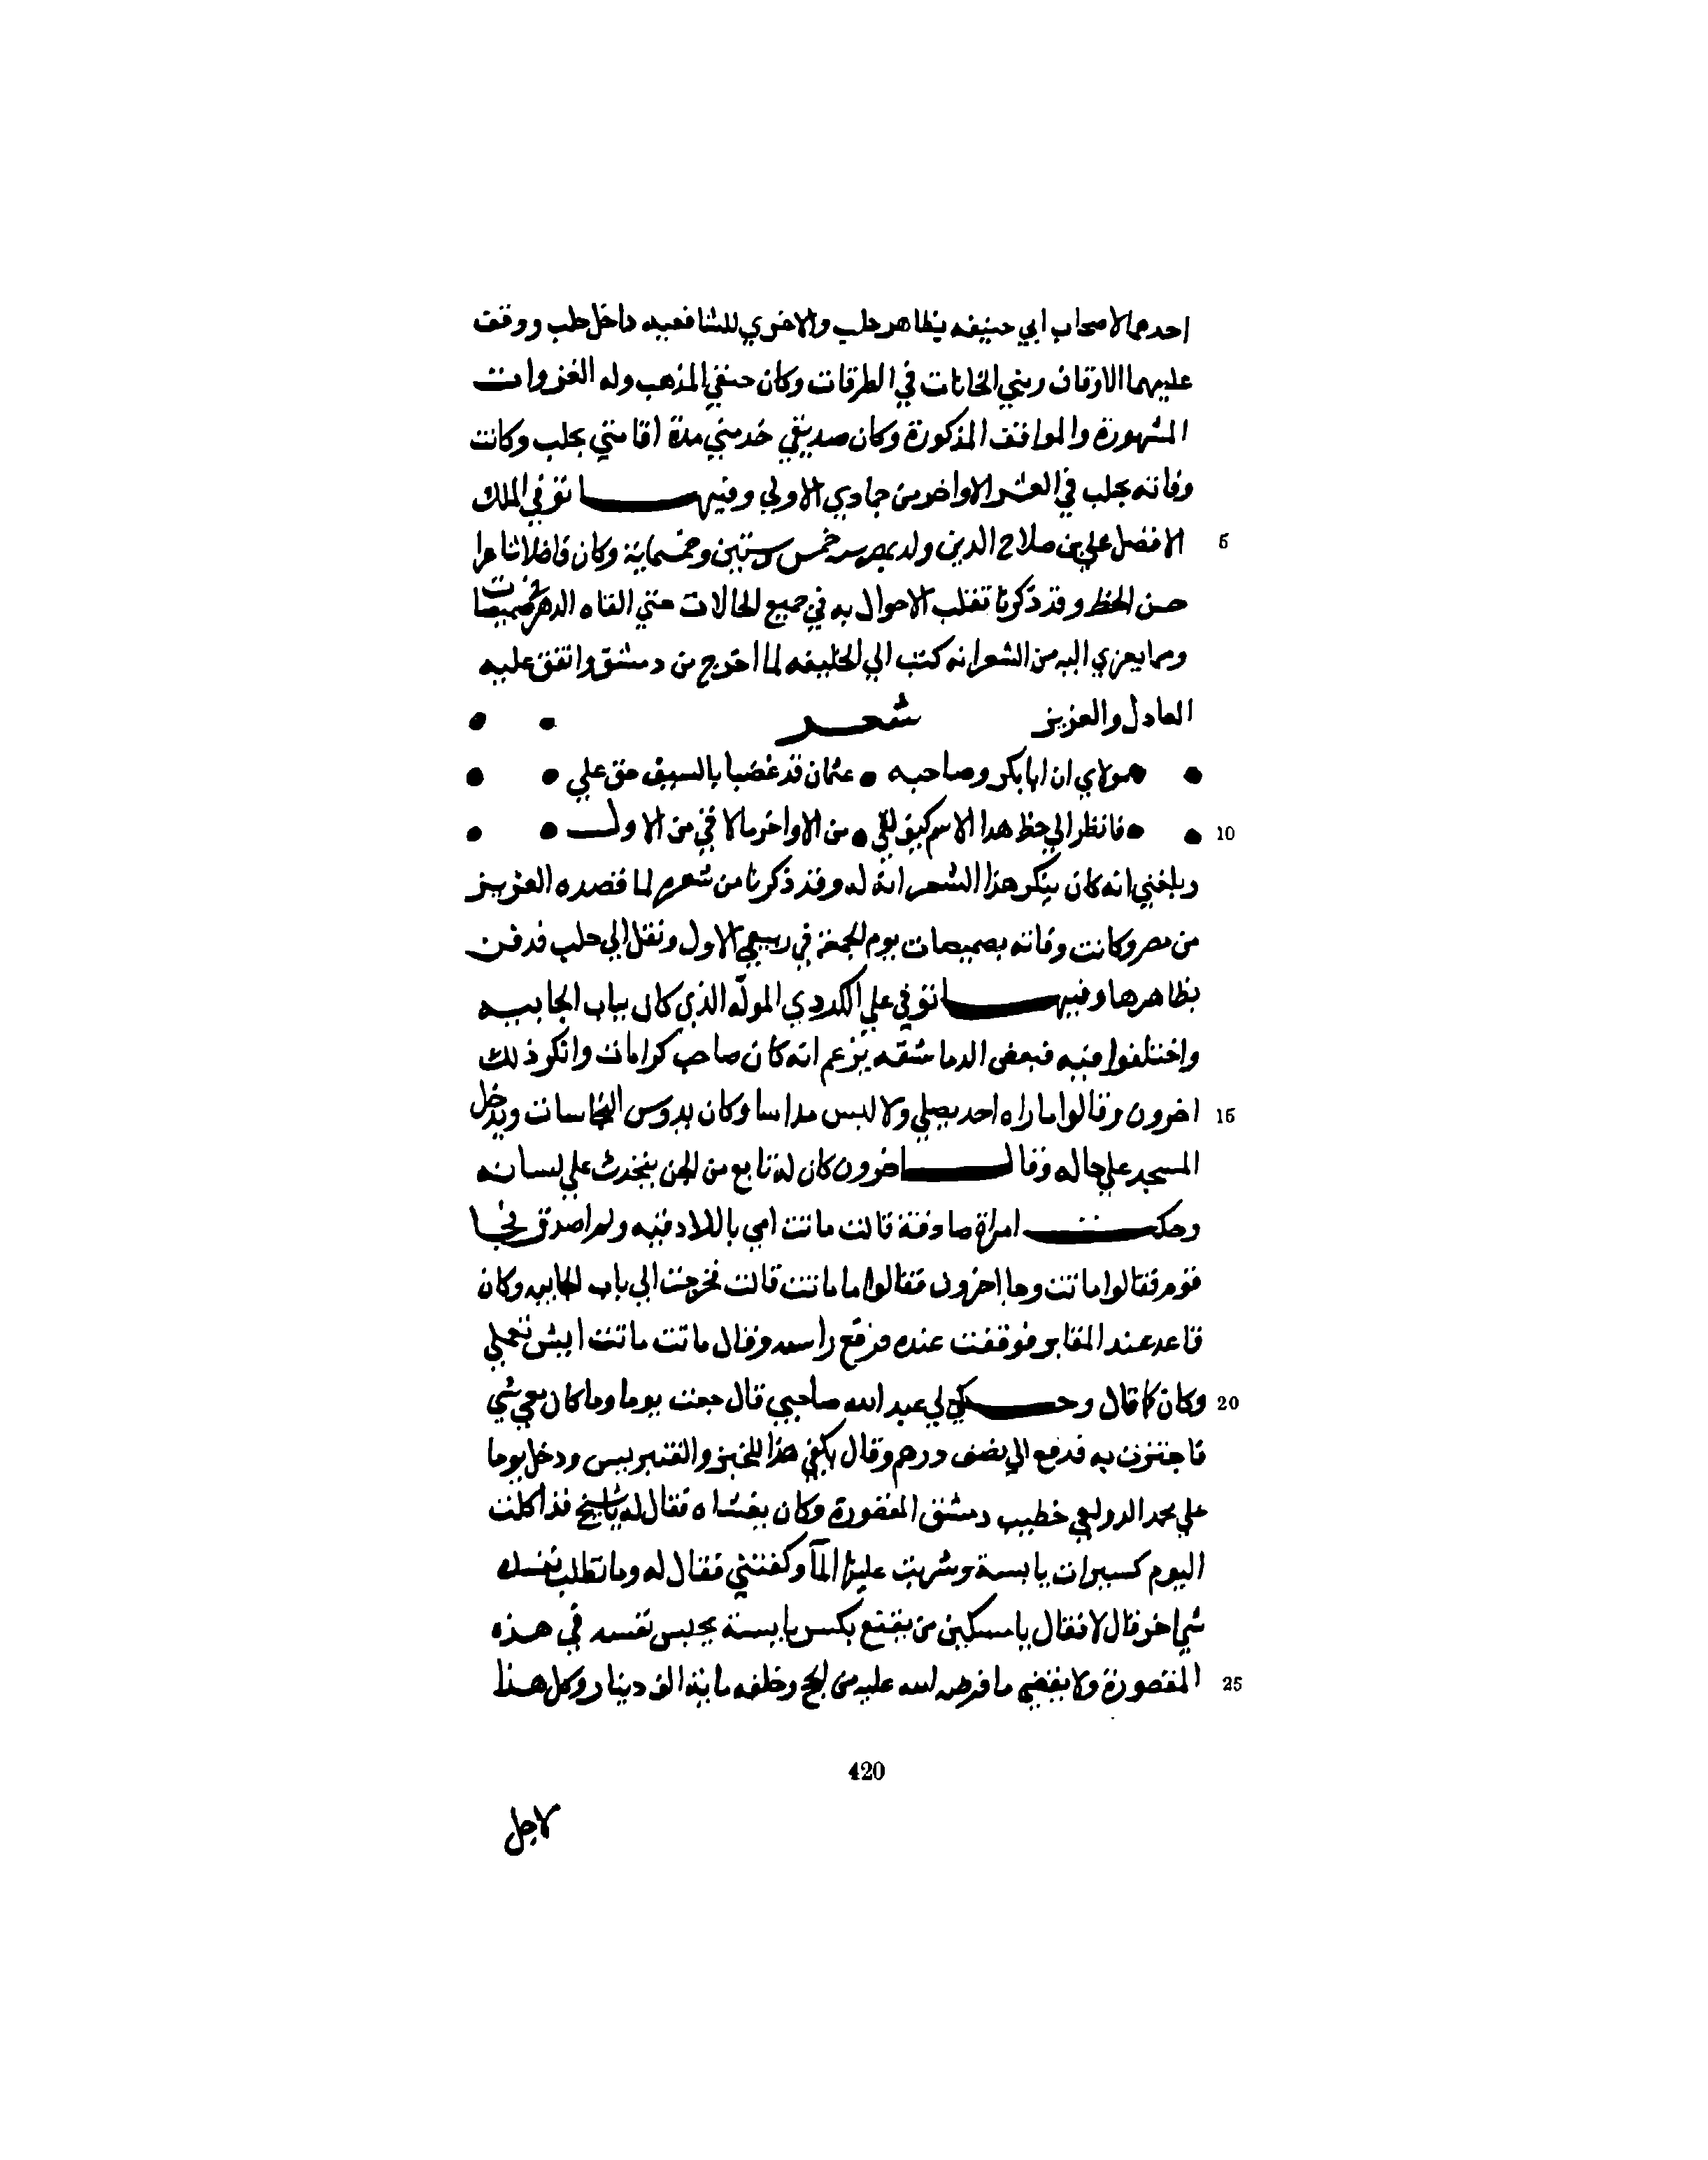 احدهما لاصحاب ابي حنيفه بظاهر حلب والاخري للشافعيه داخل حلب ووقف
عليهما الاوقاف وبني الخانات في الطرقات وكان حنفي المذهب وله الغزوات
المشهورة والمواقف المذكورة وكان صديقي خدمني مدة اقامتي بحلب وكانت
وفاته بحلب في العشر الاواخر من جمادي الاولي وفيها توفي الملك
5 الافضل علي بن صلاح الدين ولد بمصر سنه خمس وستين وخمسماية وكان فاضلا شاعرا
حسن الخط وقد ذكرنا تقلب الاحوال به في جميع الحالات حتي القاه الدهر في صميصات
ومما يعزي اليه من الشعر انه كتب الي الخليفه لما اخرج من دمشق واتفق عليه
العادل والعزيز شعر
مولاي ان ابا بكر وصاحبه • عثمان قد غضبا بالسيف حق علي
10 فانظر الي حظ هدا الاسم كيف لقي • من الاواخر ما لا قي من الاول
وبلغني انه كان ينكر هذا الشعر انه له وقد ذكرنا من شعره لما قصده العزيز
من مصر وكانت وفاته بصميصات يوم الجمعة في ربيع الاول ونقل الي حلب فدفن
بظاهرها وفيها توفي علي الكردي المولّه الذي كان بباب الجابيه
واختلفوا فيه فبعض الدماشقه يزعم انه كان صاحب كرامات وانكر ذلك
15 اخرون وقالوا ما راه احد يصلي ولا لبس مداسا وكان يدوس النجاسات ويدخل
المسجد علي حاله وقال اخرون كان له تابع من الجن يتحدث علي لسانه
وحكت امراة صادقة قالت ماتت امي باللادقيه ولم اصدق فجا
قوم فقالوا ماتت وجا اخرون فقالوا ما ماتت قالت فخرجت الي باب الجابيه وكان
قاعد عند المقابر فوقفت عنده فرفع راسه وقال ماتت ماتت ايش تعملي
20 وكان كما قال وحكي لي عبد الله صاحبي قال جعت يوما وما كان معي شي
فاجتزت به فدفع الي نصف درهم وقال يكفي هذا للخبز والقنبريس ودخل يوما
علي محمد الدولعي خطيب دمشق المقصورة وكان يغشاه فقال له يا شيخ قد اكلت
اليوم كسيرات يابسة وشربت عليها المآ وكفتني فقال له وما تطلب نفسك
شي اخر قال لا فقال يا مسكين من يقنع بكسر يابسة يحبس نفسه في هذه
25 المقصورة ولا يقضي ما فرضه الله عليه من الحج وخلفه ماية الف دينار وكل هذا
420
لاجل